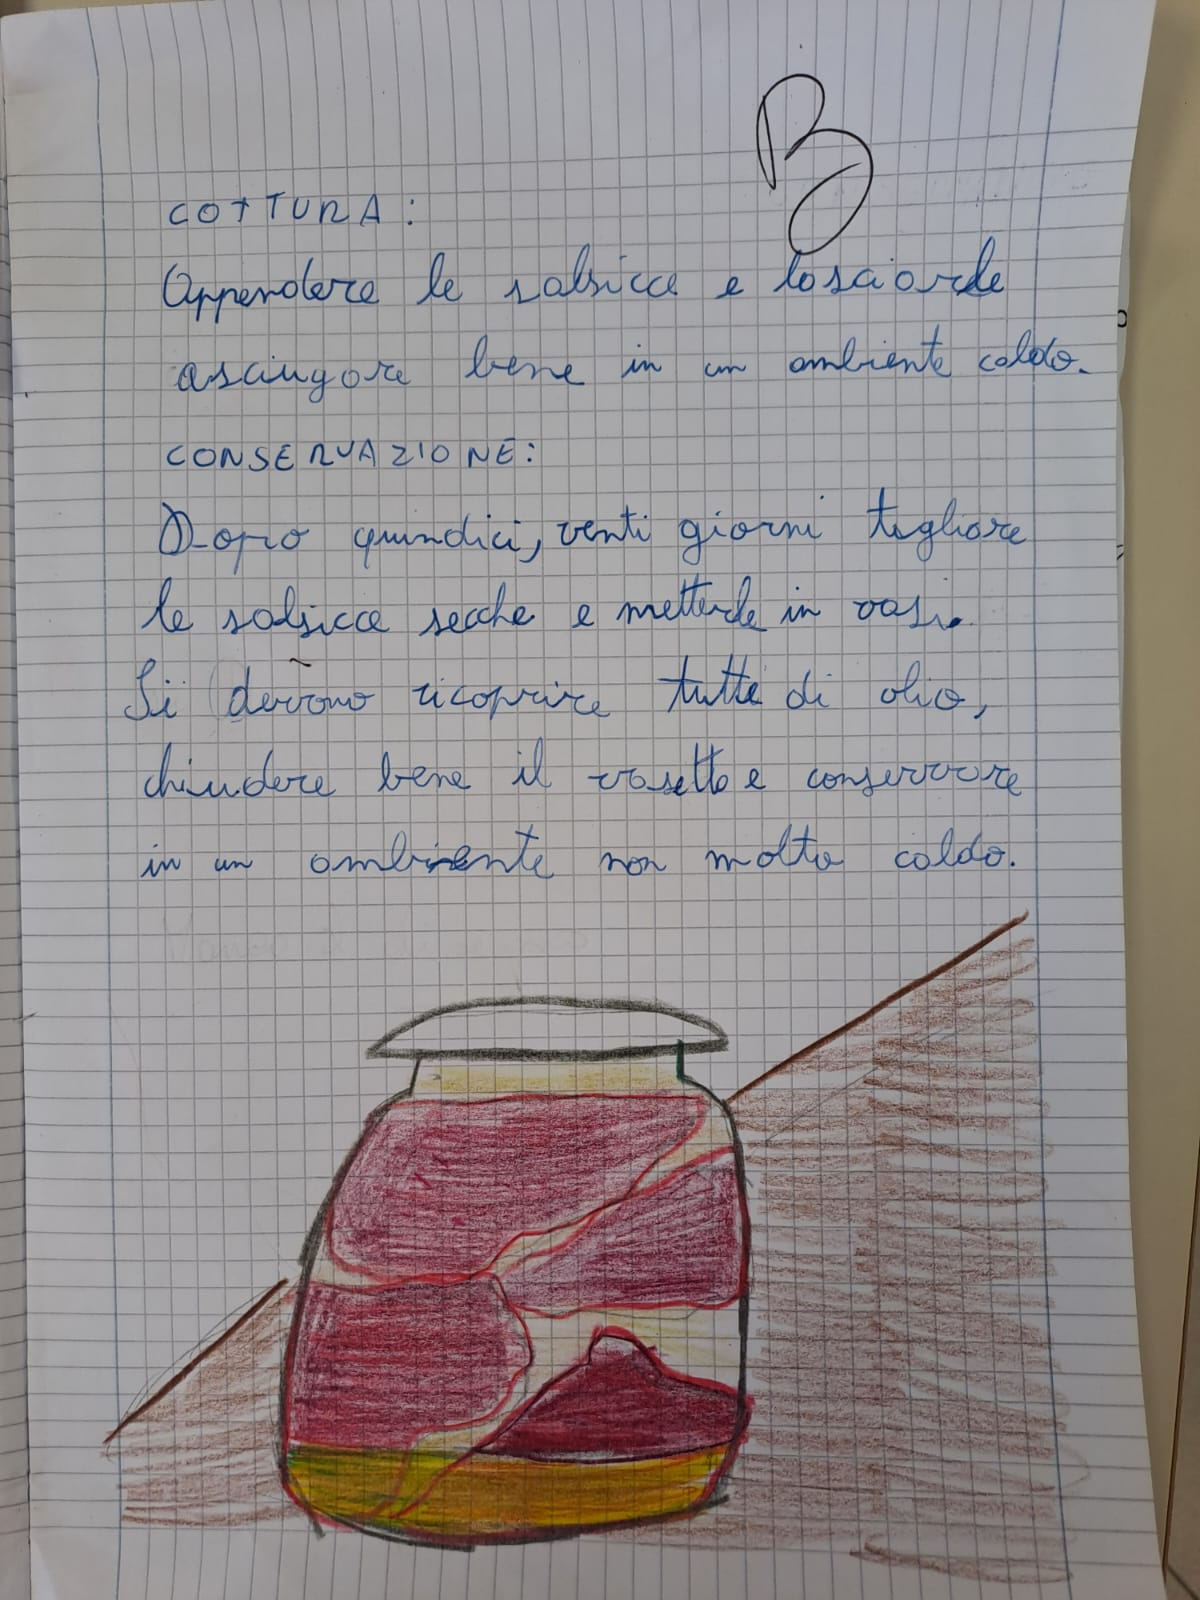 B
COTTURA:
Appendere le salsicce e lasciarle
asciugare bene in un ambiente caldo.
CONSERVAZIONE:
Dopo quindici, venti giorni togliere
le salsicce secche e metterle in vasi.
Si devono ricoprire tutte di olio,
chiudere bene il vasetto e conservare
in un ambiente non molto caldo.